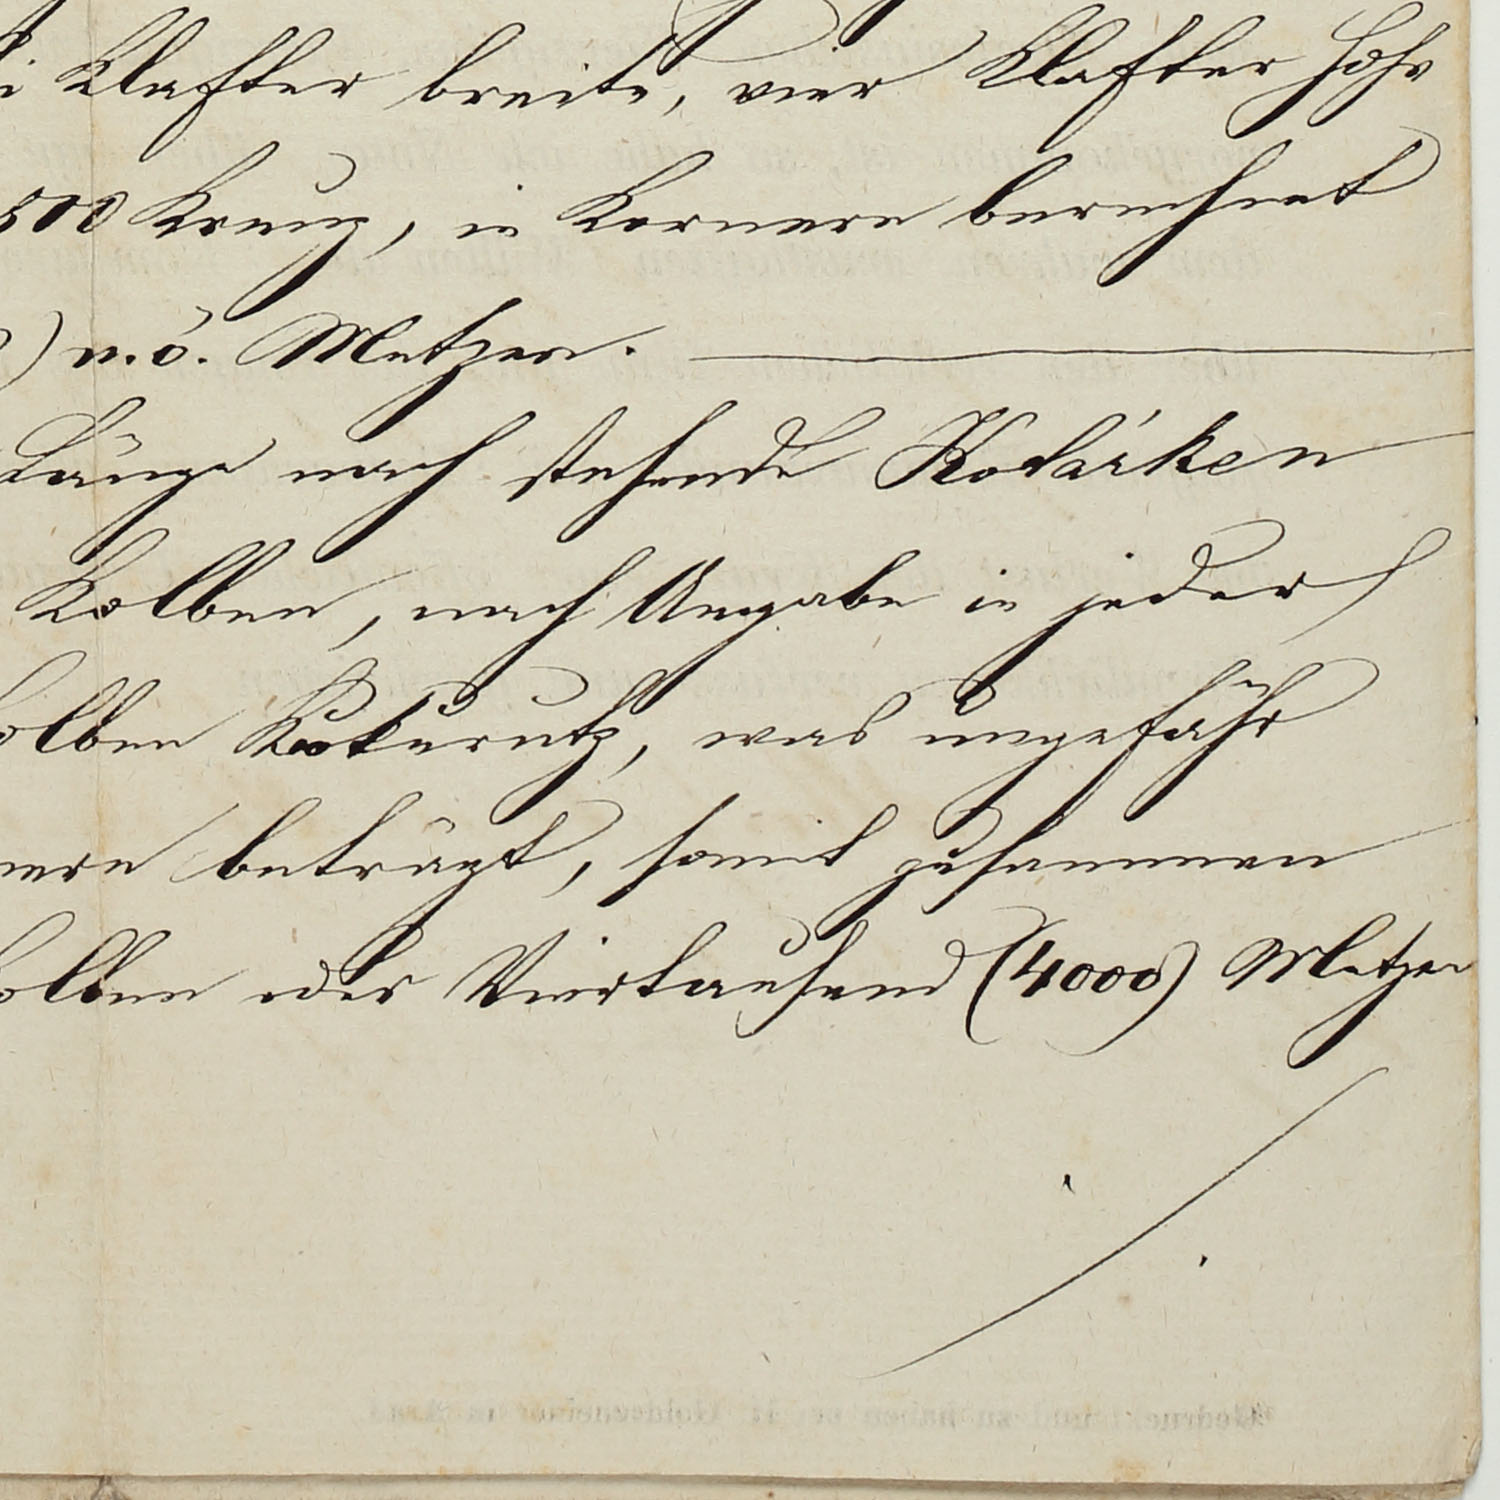 Klafter breite, vier Klafter hohe
500 Kreuz, in Körnern berechnet
) n. ö. Metzen.
Länge nach stehende Kotárken
Kolben, nach Angabe in jeder
olben Kukurutz, was ungefähr
nern beträgt, somit zusammen
olben oder Viertausend (4000) Metzen